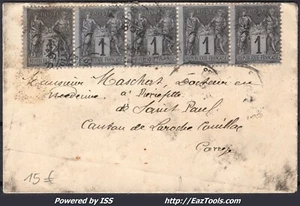 1 1 1 1 1
Monsieur Maschat, Docteur en
Médecine à
de Saint Paul
Canton de Laroche Canillac
Corrèze
15 €
Powered by ISS
http://EazTools.com